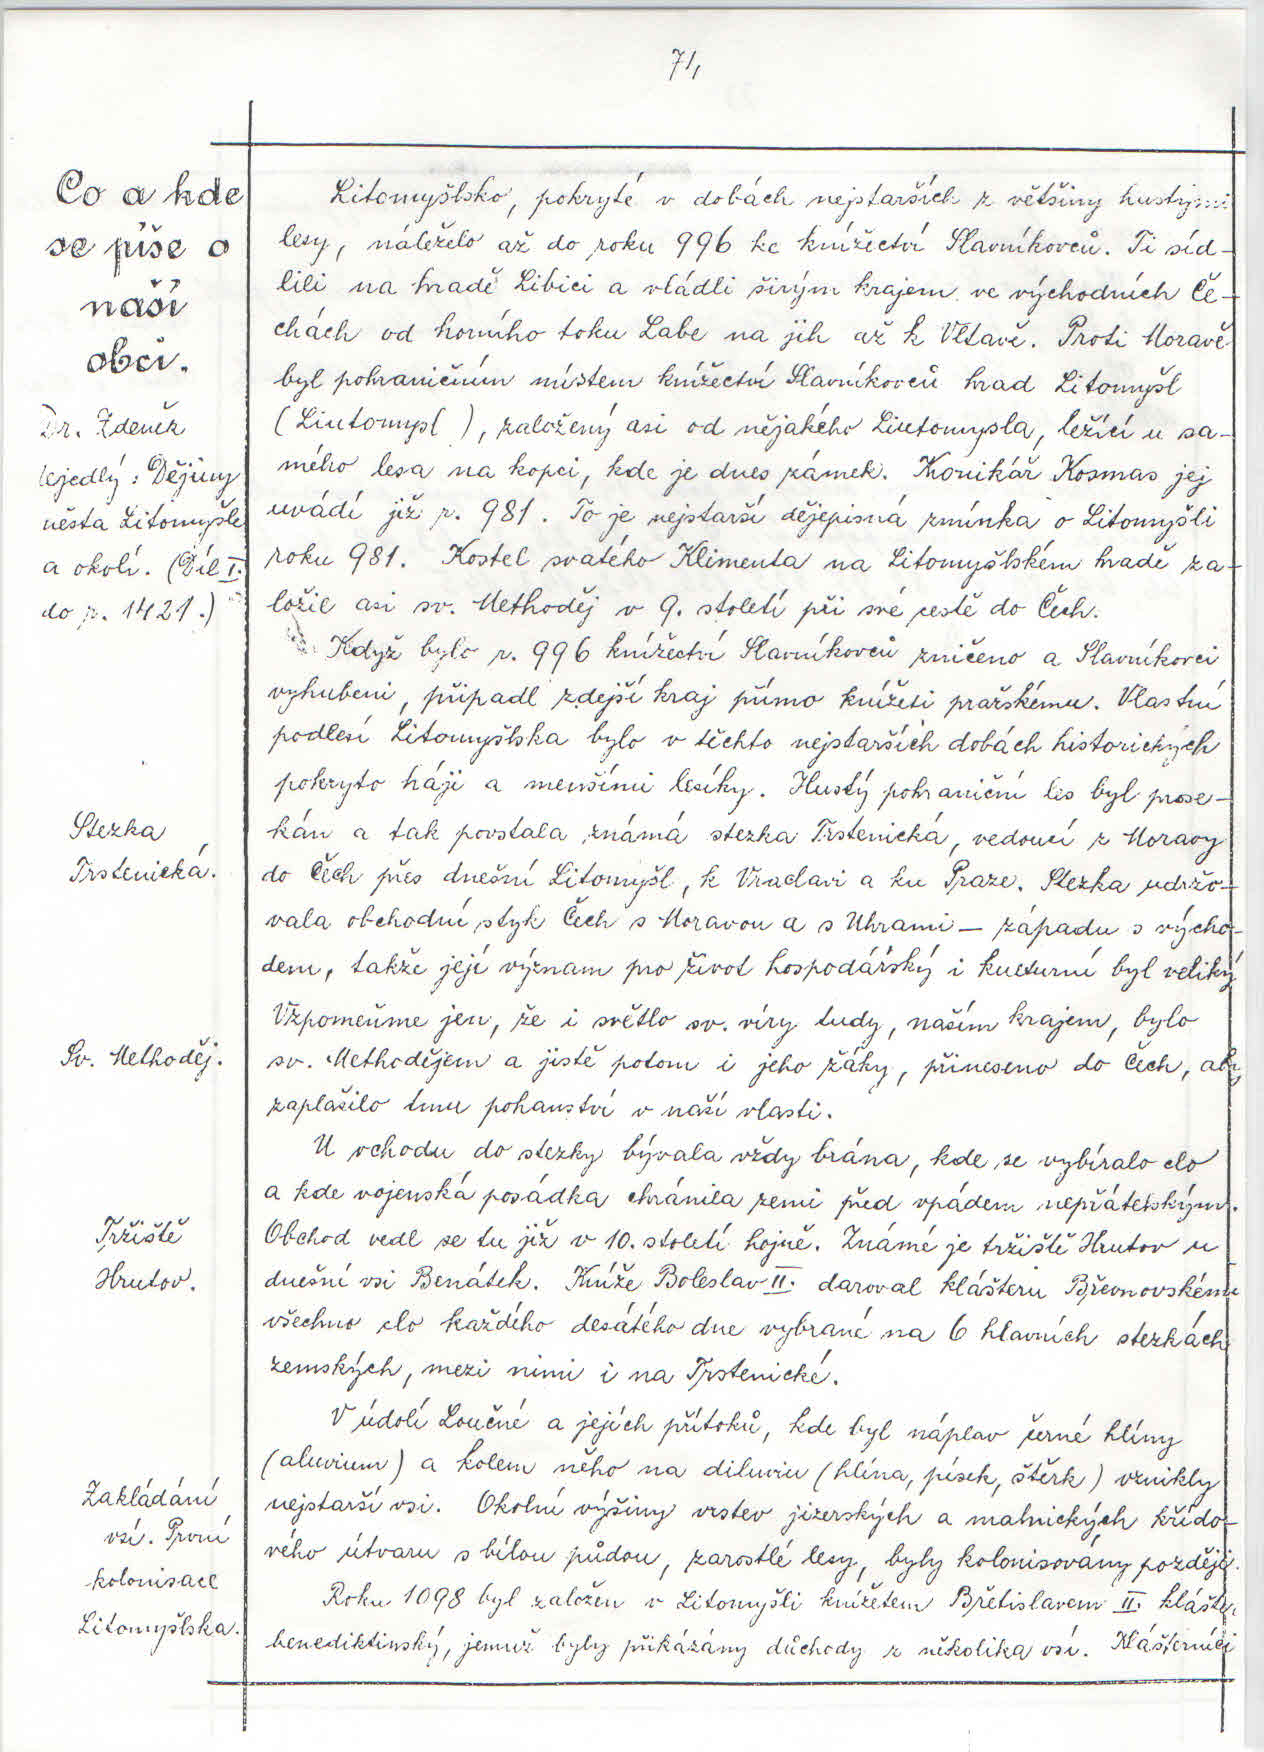 71,
Co a kde
se píše o
naší
obci.
Dr. Zdeněk
Nejedlý: Dějiny
města Litomyšle
a okolí. (Díl I.
do r. 1421.)
Litomyšlsko, pokryté v dobách nejstarších z většiny hustými
lesy, náleželo až do roku 996 ke knížectví Slavníkovců. Ti síd-
lili na hradě Libici a vládli širým krajem ve východních Če-
chách od horního toku Labe na jih až k Vltavě. Proti Moravě
byl pohraničním místem knížectví Slavníkovců hrad Litomyšl
(Liutomysl), založený asi od nějakého Liutomysla, ležící u sa-
mého lesa na kopci, kde je dnes zámek. Kronikář Kosmas jej
uvádí již r. 981. To je nejstarší dějepisná zmínka o Litomyšli
roku 981. Kostel svatého Klimenta na Litomyšlském hradě za-
ložil asi sv. Methoděj v 9. století při své cestě do Čech.
Když bylo r. 996 knížectví Slavníkovců zničeno a Slavníkovci
vyhubeni, připadl zdejší kraj přímo knížeti pražskému. Vlastní
podlesí Litomyšlska bylo v těchto nejstarších dobách historických
pokryto háji a menšími lesíky. Hustý pohraniční les byl prose-
Stezka
Trstenická.
kán a tak povstala známá stezka Trstenická, vedoucí z Moravy
do Čech přes dnešní Litomyšl, k Vraclavi a ku Praze. Stezka udržo-
vala obchodní styk Čech s Moravou a s Uhrami – západu s výcho-
dem, takže její význam pro život hospodářský i kulturní byl veliký
Vzpomeňme jen, že i světlo sv. víry tudy, naším krajem, bylo
Sv. Methoděj.
sv. Methodějem a jistě potom i jeho žáky, přineseno do Čech, aby
zaplašilo tmu pohanství v naší vlasti.
U vchodu do stezky bývala vždy brána, kde se vybíralo clo
a kde vojenská posádka chránila zemi před vpádem nepřátelským.
Tržiště
Hrutov.
Obchod vedl se tu již v 10. století hojně. Známé je tržiště Hrutov u
dnešní vsi Benátek. Kníže Boleslav II. daroval klášteru Břevnovskému
všechno clo každého desátého dne vybrané na 6 hlavních stezkách
zemských, mezi nimi i na Trstenické.
V údolí Loučné a jejích přítoků, kde byl náplav černé hlíny
(aluvium) a kolem něho na diluviu (hlína, písek, štěrk) vznikly
Zakládání
vsí. První
kolonisace
Litomyšlska.
nejstarší vsi. Okolní výšiny vrstev jizerských a malnických křído-
vého útvaru s bílou půdou, zarostlé lesy, byly kolonisovány později.
Roku 1098 byl založen v Litomyšli knížetem Břetislavem II. klášter
benediktinský, jemuž byly přikázány důchody z několika vsí. Klášterníci